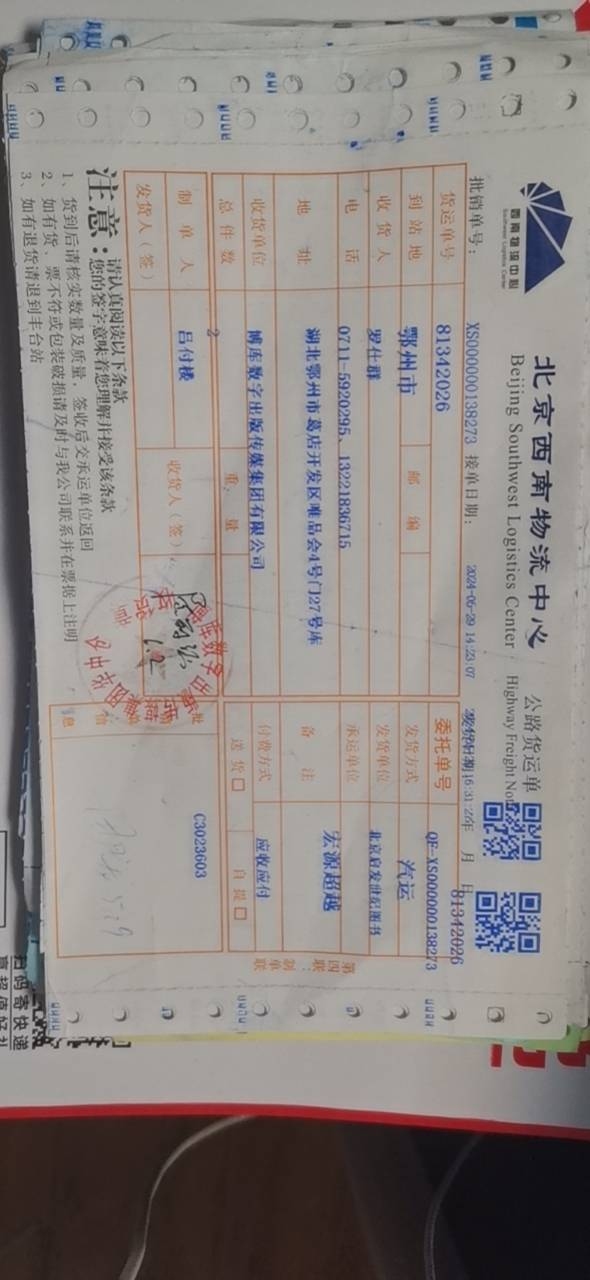 西南物流中心
Southwest Logistics Center
北京西南物流中心
公路货运单
Beijing Southwest Logistics Center
Highway Freight Not
81342026
批销单号: XS000000138273 接单日期: 2024-05-29 14:23:07
年 月 日
货运单号 81342026 委托单号 QF-XS000000138273
到站地 鄂州市 邮编 发货方式 汽运
收货人 罗仕群 发货单位 北京启发世纪图书
电话 0711-5920295、13221836715 承运单位
地址 湖北鄂州市葛店开发区唯品会4号门27号库 备注 宏源超越
收货单位 博库数字出版传媒集团有限公司 付费方式 应收应付
总件数 2 重量 送货□ 自提□
制单人 吕付楼 收货人(签)
发货人(签)
C3023603
第四联:制单联
注意: 请认真阅读以下条款
您的签字意味着您理解并接受该条款
1、货到后请核实数量及质量,签收后交承运单位返回
2、如有货、票不符或包装破损请及时与我公司联系并在票据上注明
3、如有退货请退到丰台站
扫码寄快递